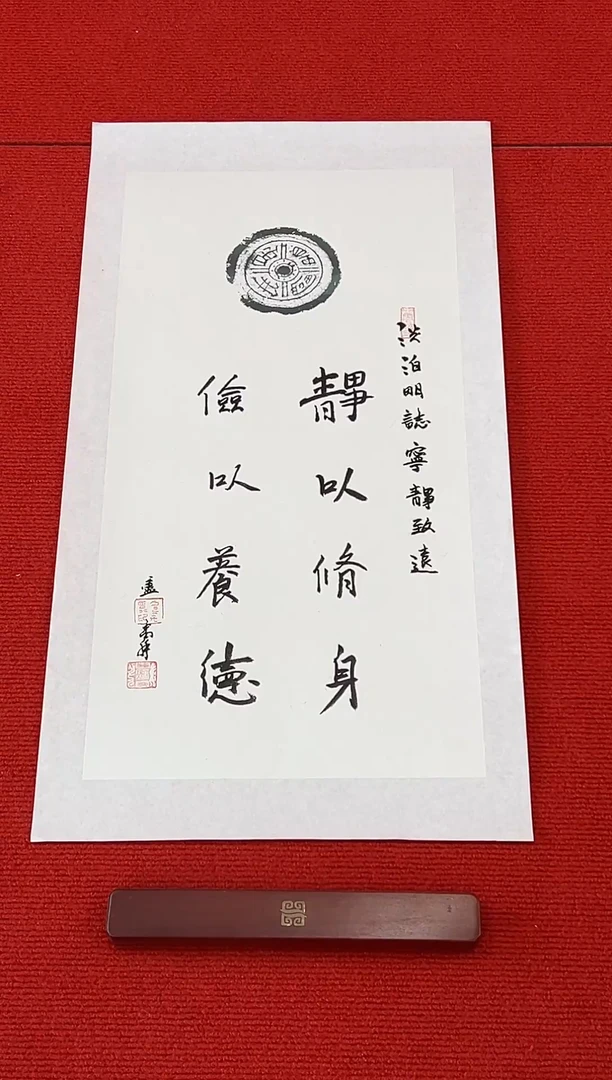 淡泊明誌寧靜致遠
靜以脩身
儉以養德